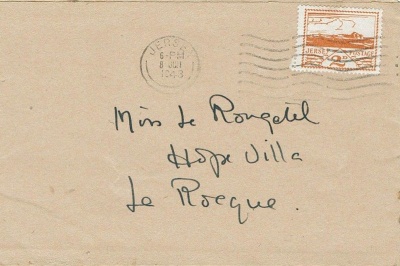 JERSEY
6 - PM
8 JUN
1943
JERSEY POSTAGE
2D
Miss Le Rougetel
Hope Villa
Le Rocque.